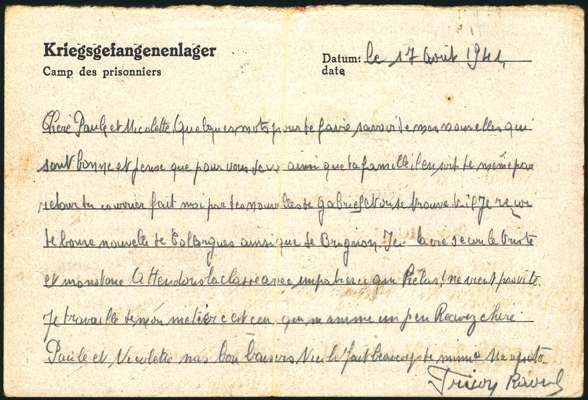 Kriegsgefangenenlager
Camp des prisonniers
Datum: le 17 Août 1941
date
Chère Paule et Nicolette Quelques mots pour te faire savoir de mes nouvelles qui
sont bonne et pense que pour vous deux ainsi que ta famille il en soit de même par
retour du courrier fait moi par de nouvelles de Gabriel et ou se trouve t-il Je reçoi
de bonne nouvelle de ainsi que de Ici la vie s'écoule triste
et monotone Attendons la classe avec impatience qui Helas! ne vient pas vite.
Je travaille de mon métier c'est ceu qui m'amuse un peu Recevez chère
Paule et Nicolette mes bon baisers
Raoul